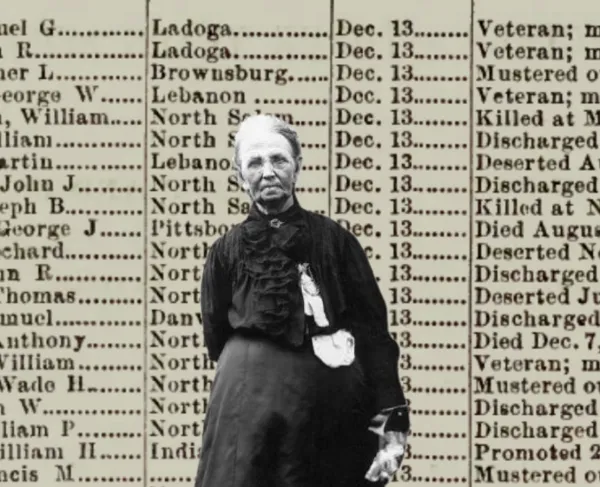 uel G........ Ladoga............ Dec. 13........ Veteran; m
R.......... Ladoga............ Dec. 13........ Veteran; m
ner L........ Brownsburg...... Dec. 13........ Mustered o
eorge W...... Lebanon .......... Dec. 13........ Veteran; m
, William.... North Dec. 13........ Killed at M
lliam........ North S Dec. 13........ Discharged
artin........ Lebano Dec. 13........ Deserted Au
John J....... North S Dec. 13........ Discharged
eph B........ North Sa Dec. 13........ Killed at N
George J..... Pittsbo Dec. 13........ Died Augus
chard........ North Dec. 13........ Deserted No
n R.......... Nort 13........ Discharged
Thomas....... Nort 13........ Deserted Ju
muel......... Danv 13........ Discharged
Anthony...... Nort 13........ Died Dec. 7,
William...... North 13........ Veteran; m
Wade H....... North 3........ Mustered o
W........... North 3........ Discharged
liam P....... North Discharged
illiam H..... India Promoted 2
ncis M....... .... 13........ Mustered o